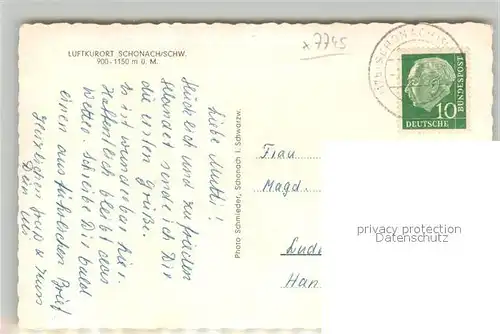 LUFTKURORT SCHONACH/SCHW.
900-1150 m ü. M.
x 7745
SCHONACH
10
DEUTSCHE
BUNDESPOST
Liebe Mutti!
Glücklich und zufrieden
gelandet sende ich Dir
die ersten Grüße.
Es ist wunderbar hier.
Hoffentlich bleibt das
Wetter. Schreibe Dir bald
einen ausführlichen Brief.
Herzlichen Gruß u. Kuss
Dein
Photo Schmieder, Schonach i. Schwarzw.
Frau
Magd.
privacy protection
Datenschutz